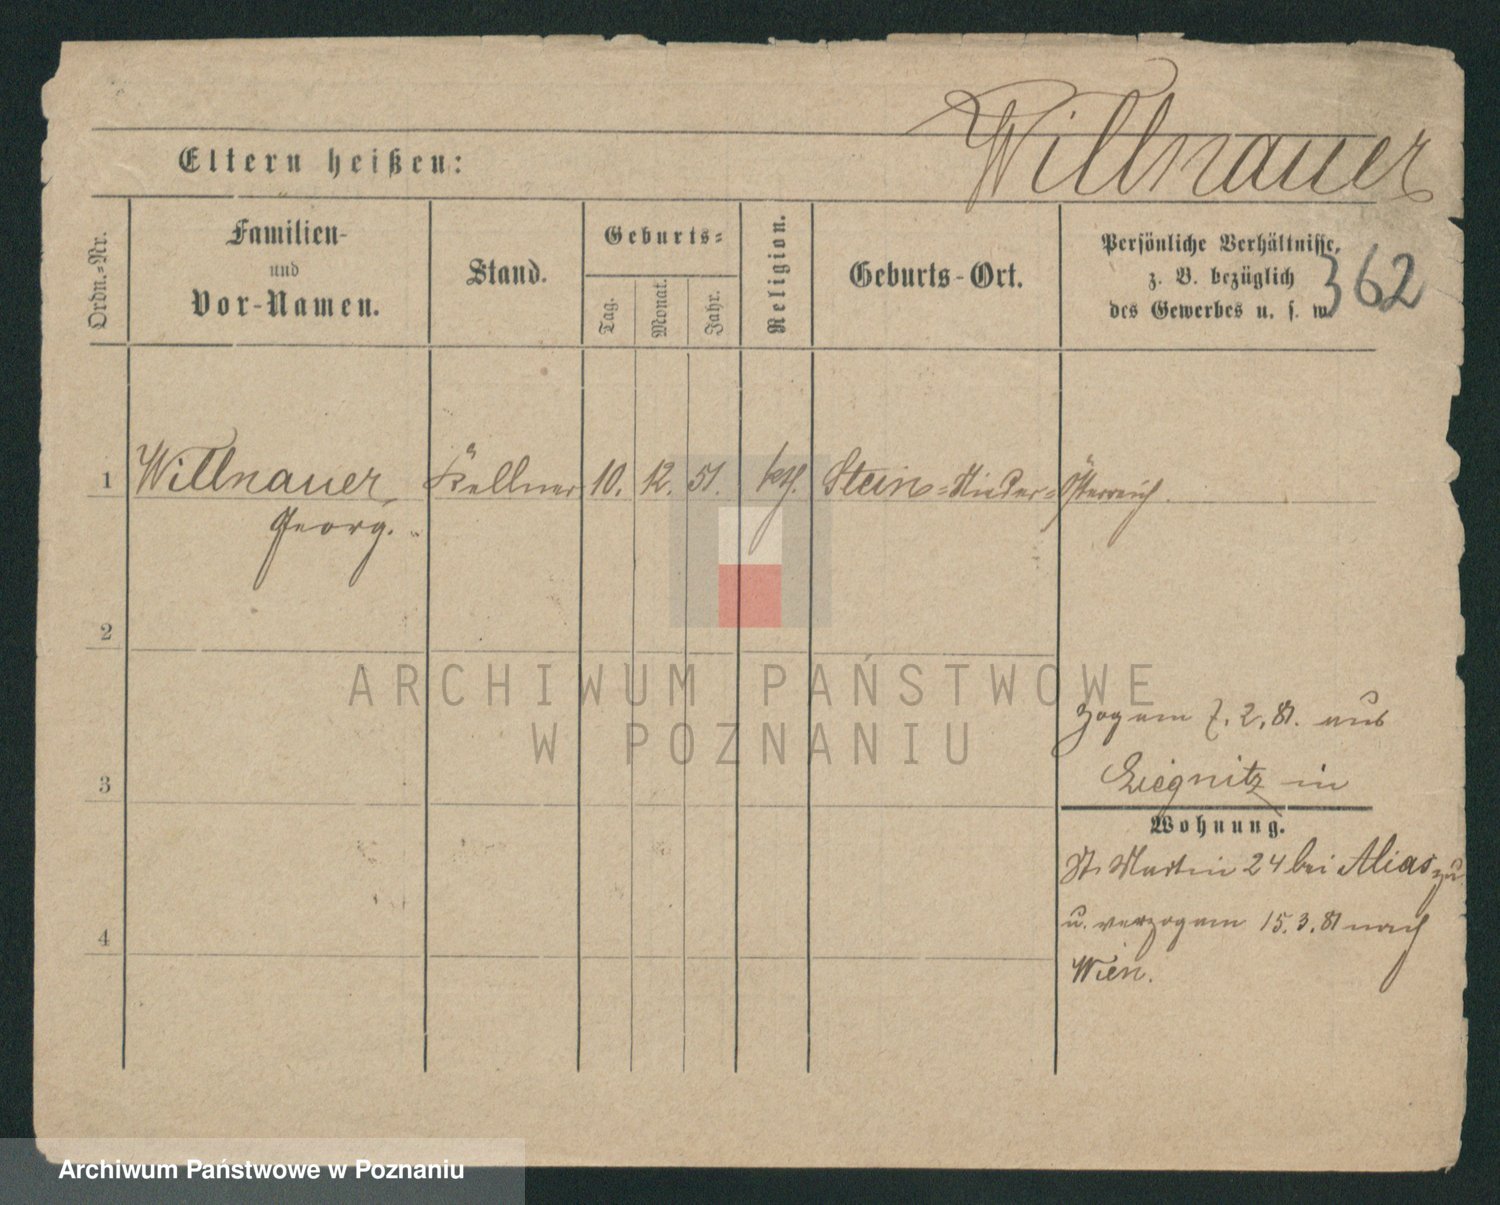 Willnauer
Eltern heißen:
Ordn.-Nr.
Familien-
und
Vor-Namen.
Stand.
Geburts-
Tag.
Monat.
Jahr.
Religion.
Geburts-Ort.
Persönliche Verhältnisse,
z. B. bezüglich
des Gewerbes u. s. w.
362
1 Willnauer, Kellner 10. 12. 51. kth. Stein-Nieder-Österreich.
Georg.
2
ARCHIWUM PAŃSTWOWE
W POZNANIU
zog am 7. 2. 81. aus
3
Liegnitz in
Wohnung.
St. Martin 24 bei Alias zu
u. verzog am 15. 3. 81 nach
4
Wien.
Archiwum Państwowe w Poznaniu